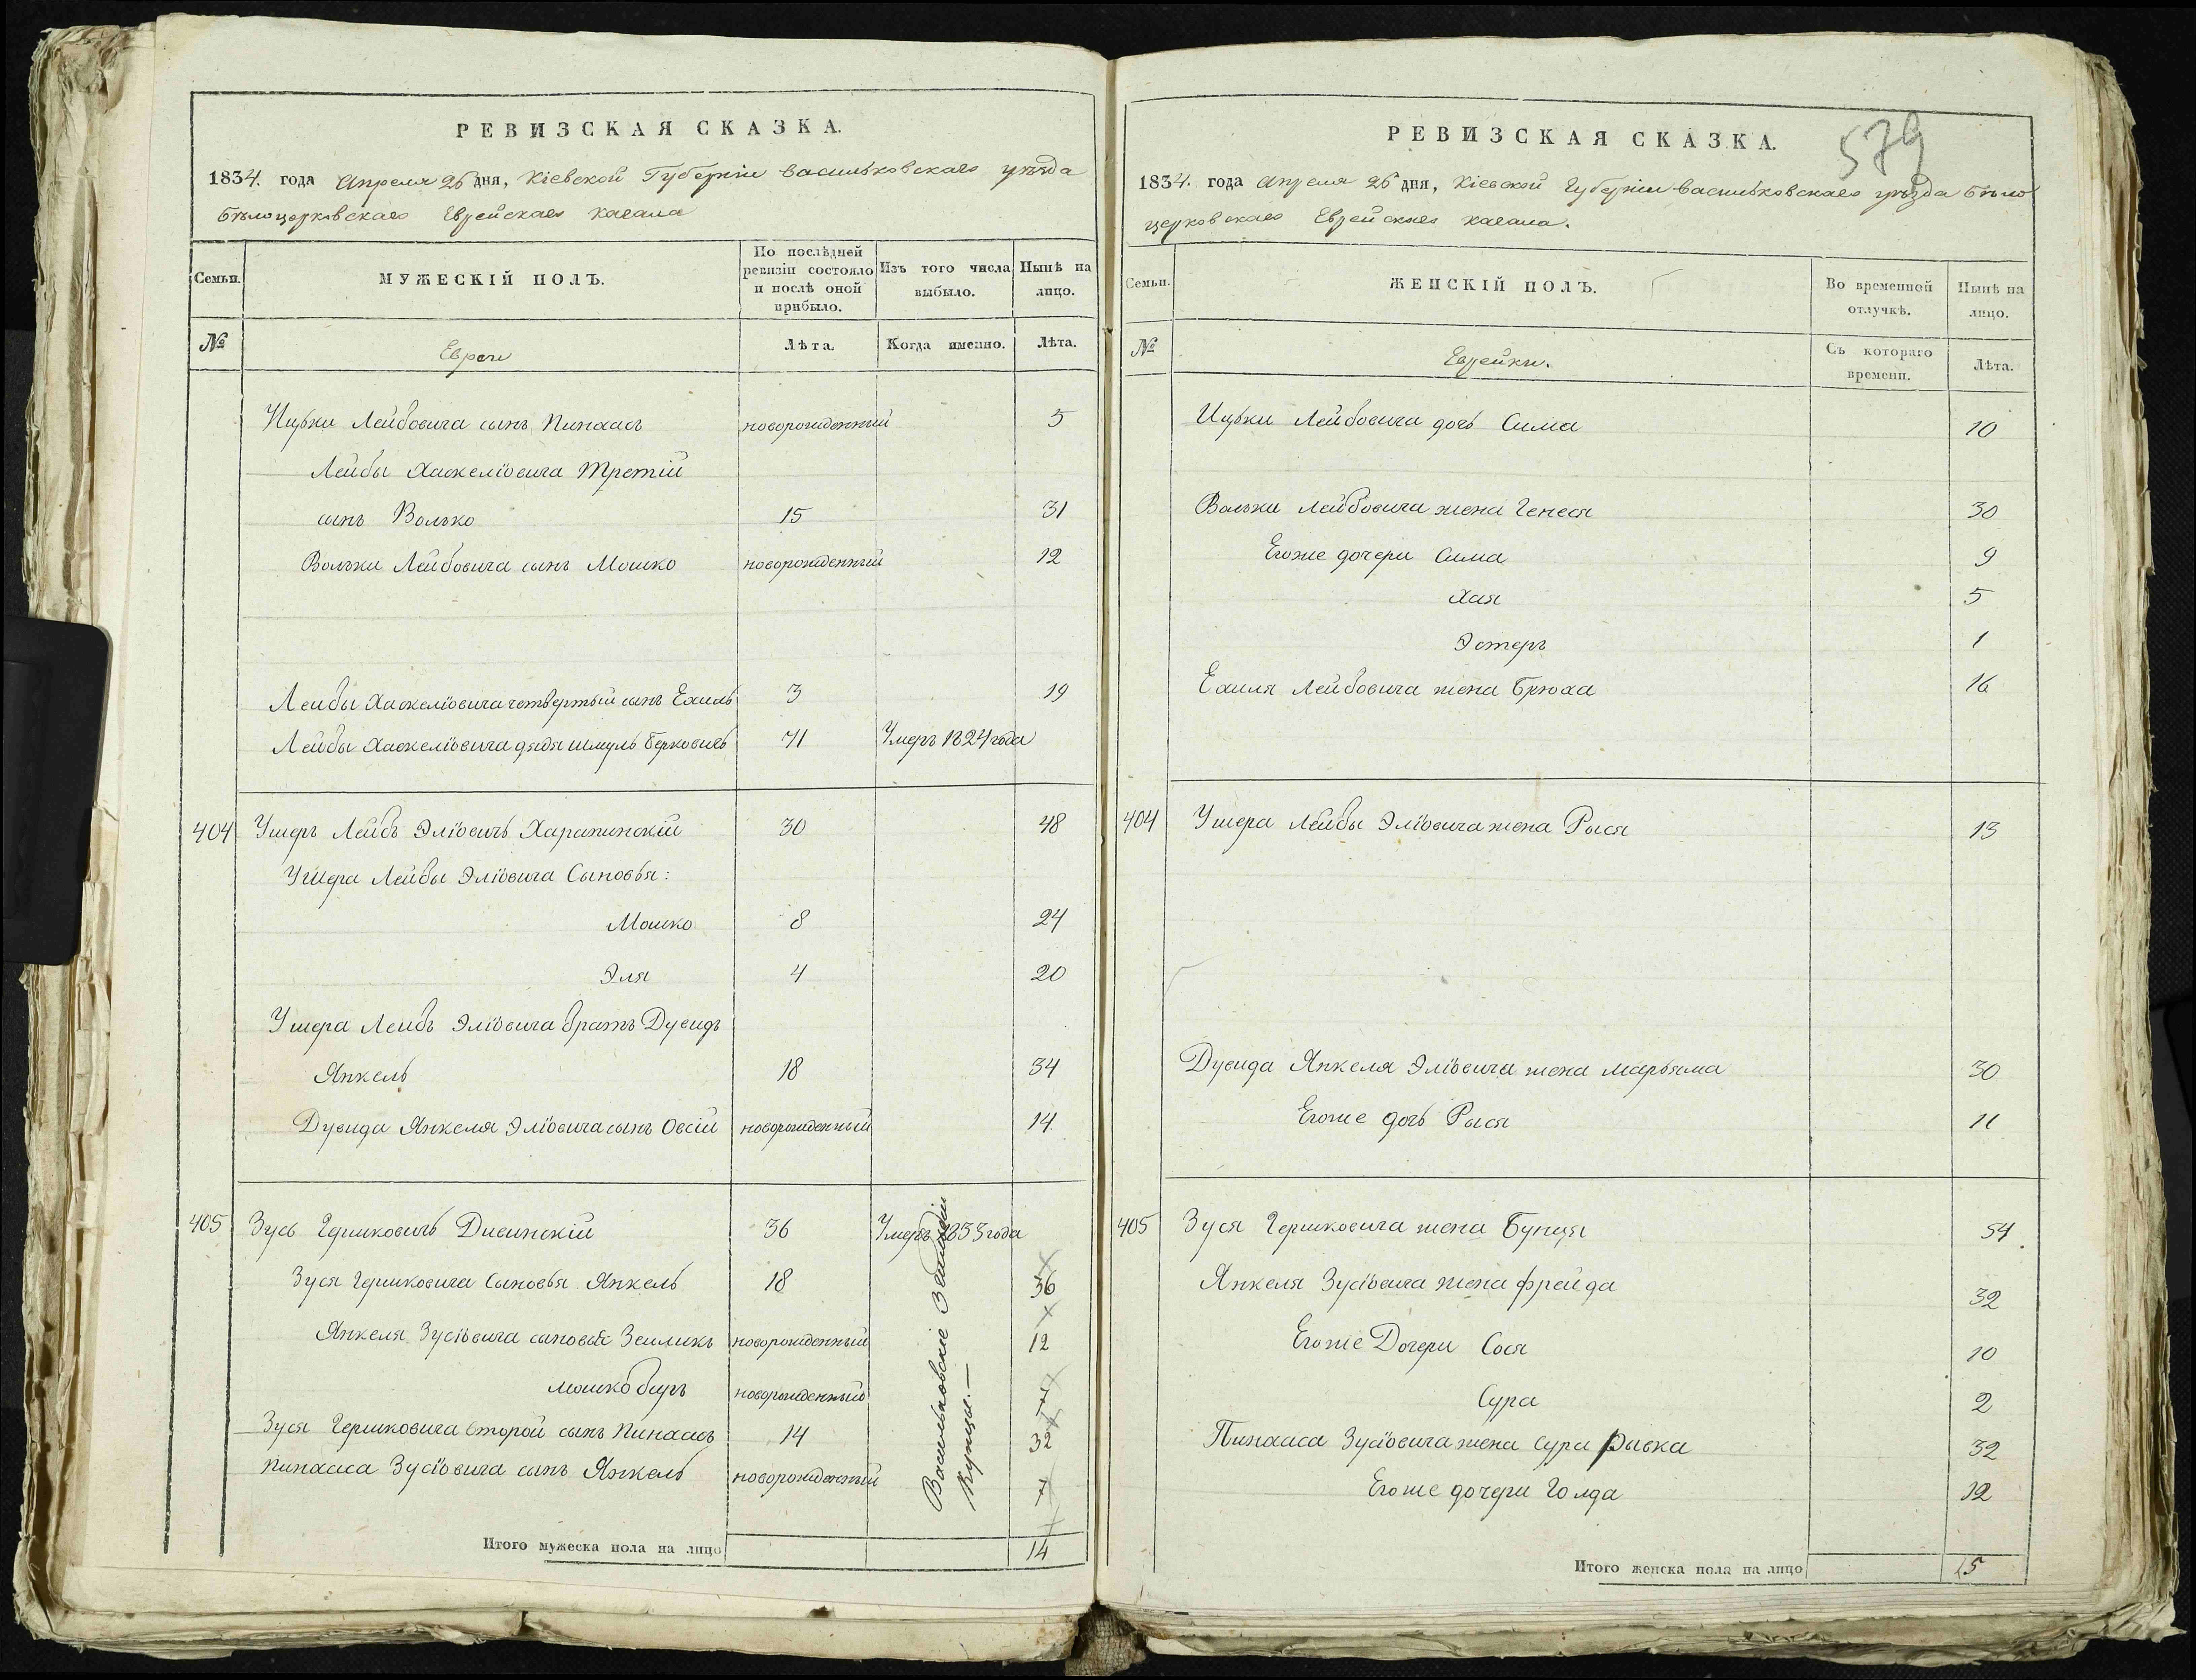 РЕВИЗСКАЯ СКАЗКА.
1834. года Апреля 26 дня, Кіевской Губерніи Васильковскаго уѣзда
Бѣлоцерковскаго Еврейскаго кагала
Семьи.
МУЖЕСКІЙ ПОЛЪ.
По послѣдней ревизіи состояло и послѣ оной прибыло.
Изъ того числа выбыло.
Нынѣ на лицо.
№
Евреи
Лѣта.
Когда именно.
Лѣта.
Ицьки Лейбовича сынъ Пинхасъ новорожденный 5
Лейбы Хаскеліовича Третій
сынъ Волько 15 31
Вольки Лейбовича сынъ Мошко новорожденный 12
Лейбы Хаскеліовича четвертый сынъ Ехиль 3 19
Лейбы Хаскеліовича дядя Шмуль Берковичъ 71 Умеръ 1824 года
404 Ушеръ Лейбъ Эліовичъ Харапинскій 30 48
Ушера Лейбы Эліовича Сыновья:
Мошко 8 24
Эля 4 20
Ушера Лейбъ Эліовича братъ Дувидъ
Янкель 18 34
Дувида Янкеля Эліовича сынъ Овсій новорожденный 14.
405 Зусь Гершковичъ Дивинскій 36 Умеръ 1833 года
Зуся Гершковича Сыновья Янкель 18 36
Янкеля Зусіовича сыновья Зейликъ новорожденный 12
Мошко Биръ новорожденный 7
Зуся Гершковича второй сынъ Пинхасъ 14 32
Пинхаса Зусіовича сынъ Янкель новорожденный 7
Васильковскіе 3 гильдіи
Купцы. —
Итого мужеска пола на лицо 14
579
РЕВИЗСКАЯ СКАЗКА.
1834. года Апреля 26 дня, Кіевской Губерніи Васильковскаго уѣзда Бѣло
церковскаго Еврейскаго кагала.
Семьи.
ЖЕНСКІЙ ПОЛЪ.
Во временной отлучкѣ.
Нынѣ на лицо.
№
Еврейки.
Съ котораго времени.
Лѣта.
Ицьки Лейбовича дочь Сима 10
Вольки Лейбовича жена Генеся 30
Егоже дочери Сима 9
Хая 5
Эстеръ 1
Ехиля Лейбовича жена Брюха 16
404 Ушера Лейбы Эліовича жена Рыся 13
Дувида Янкеля Эліовича жена Марьяма 30
Егоже дочь Рыся 11
405 Зуся Гершковича жена Бунця 54.
Янкеля Зусіовича жена Фрейда 32
Егоже Дочери Сося 10
Сура 2
Пинхаса Зусіовича жена Сура Рывка 32
Егоже дочери Голда 12
Итого женска пола на лицо 15